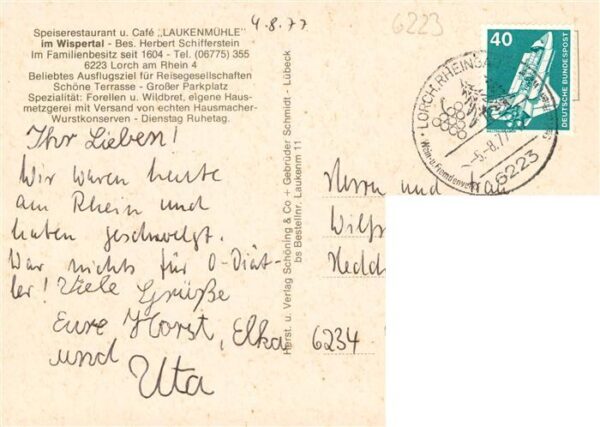 4.8.77
6223
Speiserestaurant u. Café „LAUKENMÜHLE"
im Wispertal - Bes. Herbert Schifferstein
Im Familienbesitz seit 1604 - Tel. (06775) 355
6223 Lorch am Rhein 4
Beliebtes Ausflugsziel für Reisegesellschaften
Schöne Terrasse - Großer Parkplatz
Spezialität: Forellen u. Wildbret, eigene Haus-
metzgerei mit Versand von echten Hausmacher-
Wurstkonserven - Dienstag Ruhetag.
Ihr Lieben!
Wir waren heute
am Rhein und
haben geschwelgt.
War nichts für O-Diät-
ler! Viele Grüße
Eure Horst, Elka
und
Uta
Herst. u. Verlag Schöning & Co + Gebrüder Schmidt - Lübeck
bs Bestellnr. Laukenm 11
40
DEUTSCHE BUNDESPOST
LORCH, RHEINGAU
-5.-8.77
6223
Herrn und Frau
Wilf
Hedd
6234